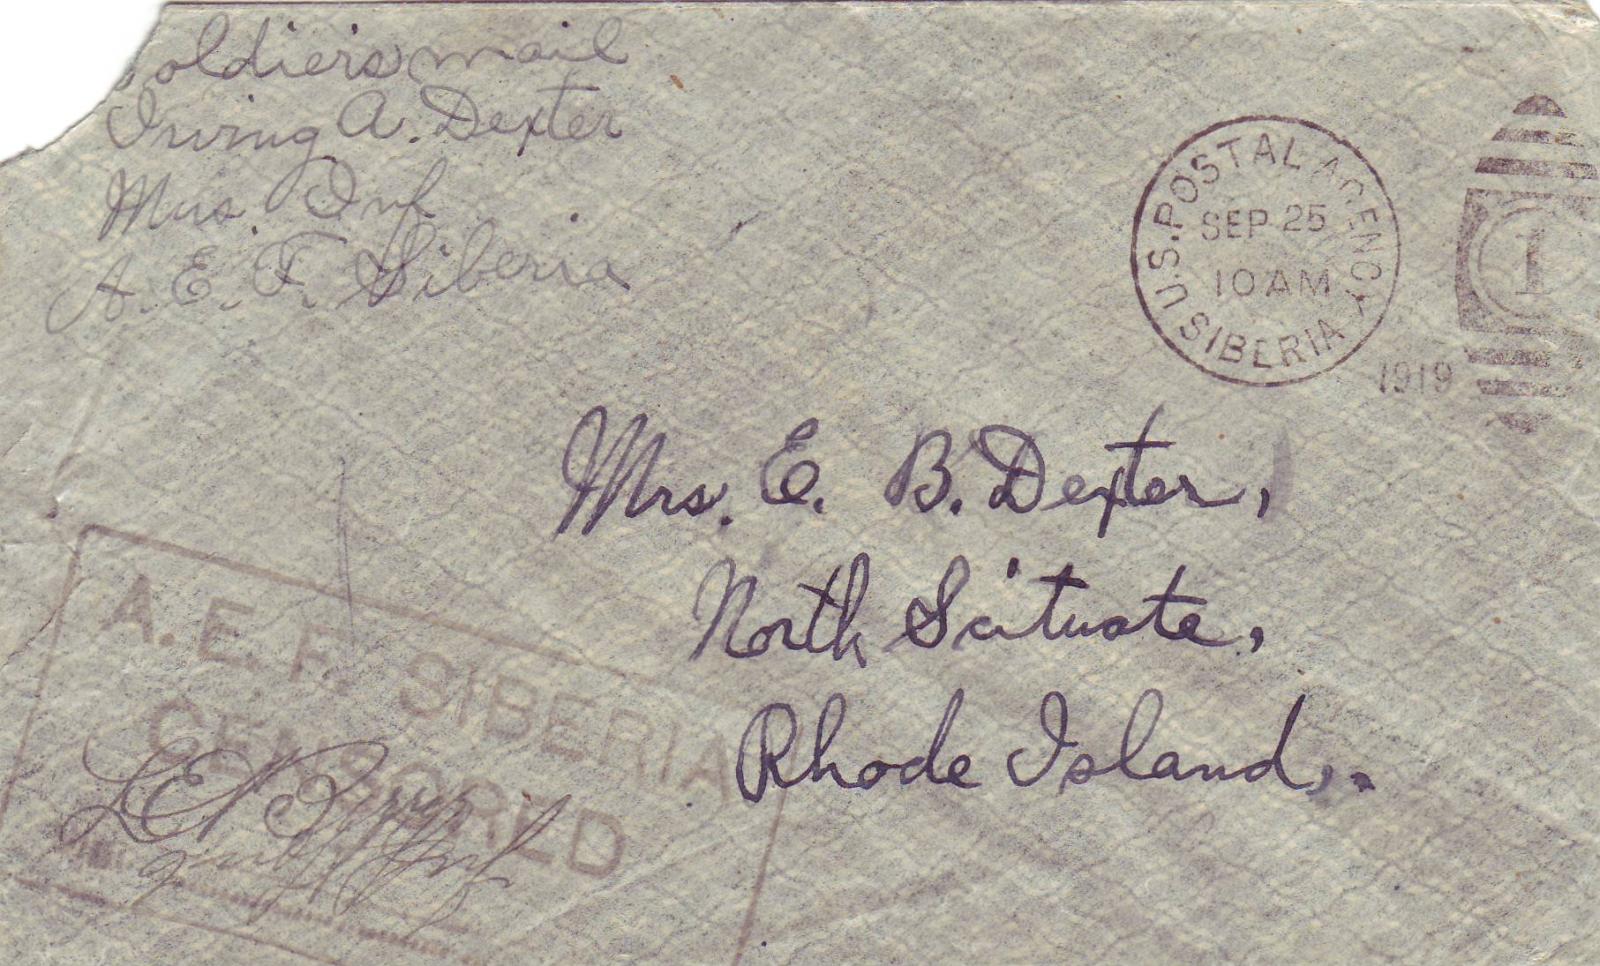 Soldiers mail
Irving A. Dexter
Mus. Inf
A. E. F. Siberia
U.S. POSTAL AGENCY
SEP 25
10 AM
SIBERIA
1919
1
Mrs. E. B. Dexter,
North Scituate,
Rhode Island,.
A. E. F. SIBERIA
CENSORED